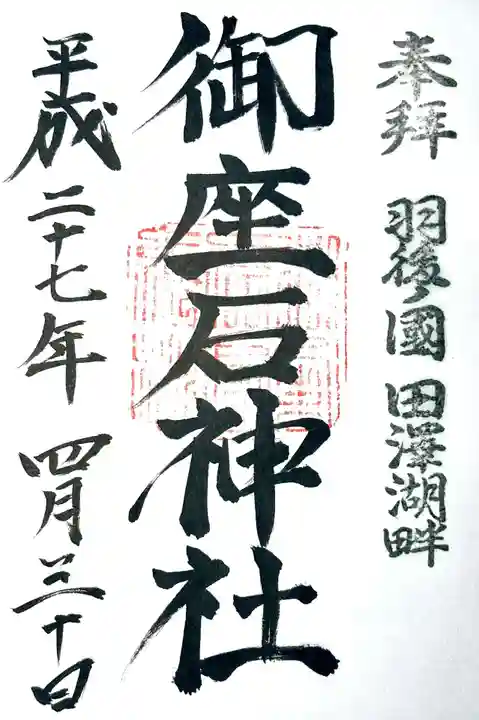 奉拝 羽後ノ國 田澤湖畔
御座石神社
平成二十七年 四月三十日